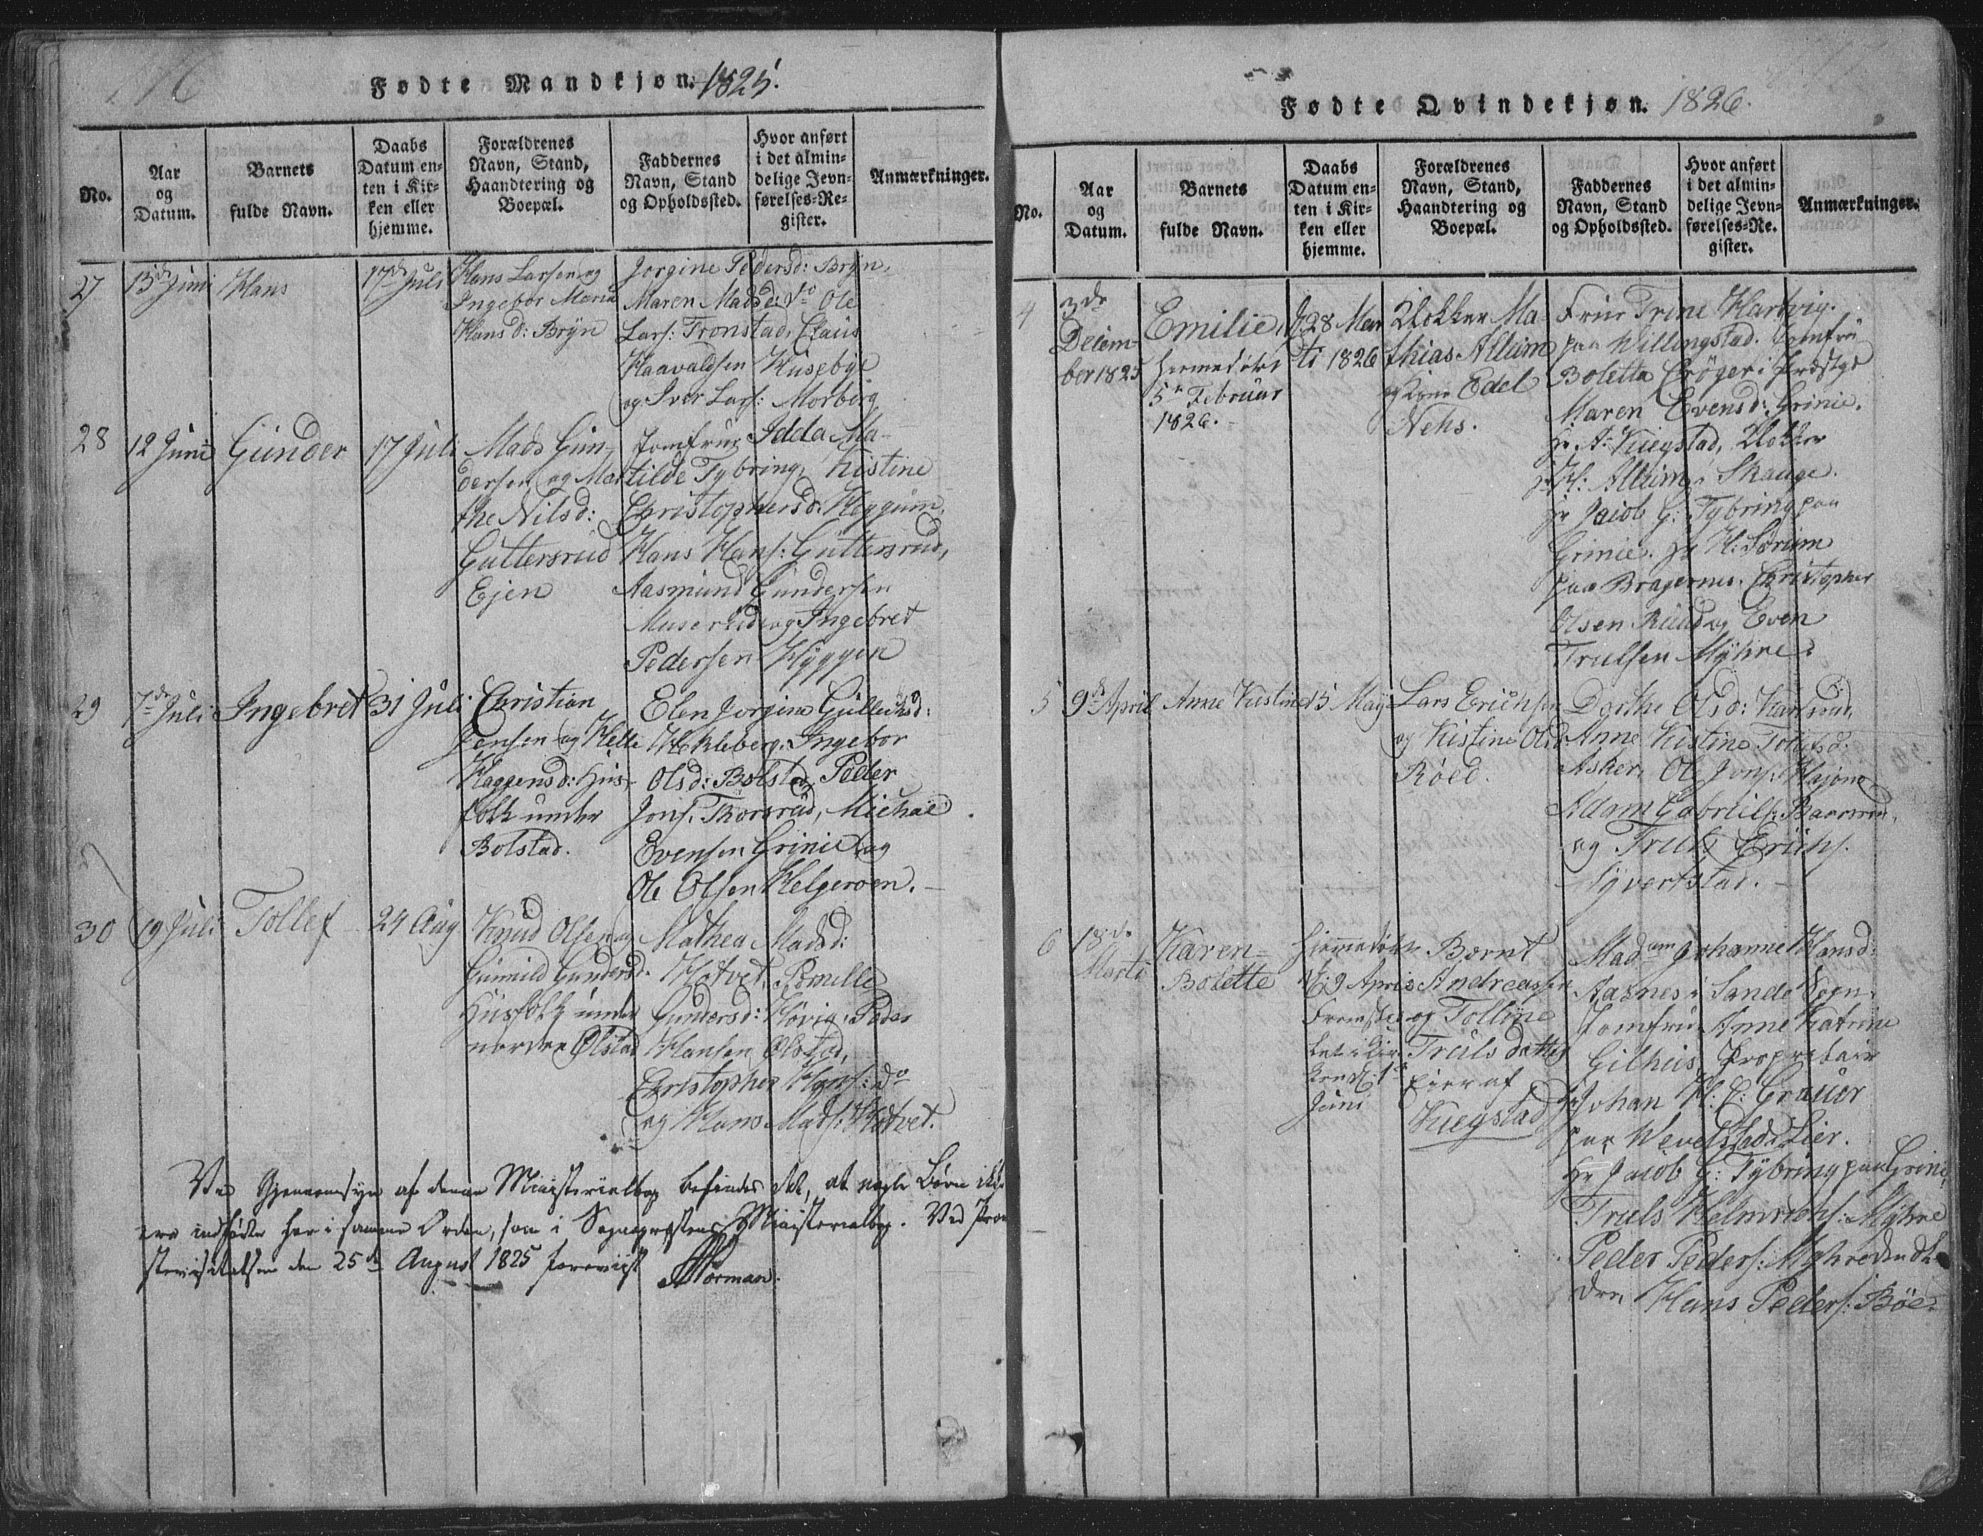 176
Fødte Mandkjøn. 1825.
No.
Aar
og
Datum.
Barnets
fulde Navn.
Daabs
Datum en-
ten i Kir-
ken eller
hjemme.
Forældrenes
Navn, Stand,
Haandtering og
Boepæl.
Faddernes
Navn, Stand
og Opholdssted.
Hvor anført
i det almin-
delige Jevn-
førelses-Re-
gister.
Anmærkninger.
27
13de Juni
Hans
17de Juli
Hans Larsen og
Ingebor Maria
Hansd: Bryn
Jorgine Pedersd: Bryn,
Maren Madsd: do Ole
Lars: Tronstad, Claus
Haavaldsen Husebye
og Iver Lars: Morberg
28
12 Juni
Gunder
17 Juli
Mads Gun-
dersen og Mar
the Nilsd:
Guttersrud
Ejen
Jomfrue Idda Ma-
tilde Tybring, Kistine
Christophersd: Heggum,
Hans Hans: Guttersrud,
Aasmund Gundersen
Muserud og Ingebret
Pedersen Hyggen
29
7de Juli
Ingebret
31 Juli
Christian
Jensen og Helle
Haagensd: Hus-
folk under
Bolstad.
Elen Jorgine Gulleiksd:
Hekleberg, Ingebor
Olsd: Bolstad, Peder
Jons. Torsrud, Michael
Evensen Grinie og
Ole Olsen Helgeroen.
30
19 Juli
Tollef
24 Aug
Knud Olsen og
Gunnild Gundersd.
Husfolk under
nordre Ølstad
Mathea Madsd:
Hotvet, Pernille
Gundersd: Høvig, Peder
Hansen Ølstad,
Christopher Hans: do
og Hans Mads: Hotvet.
Ved Gjennemsyn af denne Ministerialbog befindes det, at nogle Børn ikke
ere indførte her i samme Orden, som i Sognepræstens Ministerialbog. Ved Pro-
stevisitatsen den 25de August 1825 foreviist Norman.
Fødte Qvindekjøn. 1826.
No.
Aar
og
Datum.
Barnets
fulde Navn.
Daabs
Datum en-
ten i Kir-
ken eller
hjemme.
Forældrenes
Navn, Stand,
Haandtering og
Boepæl.
Faddernes
Navn, Stand
og Opholdssted.
Hvor anført
i det almin-
delige Jevn-
førelses-Re-
gister.
Anmærkninger.
4
3de
Decem-
ber 1825
Emilie,
hiemedøbt
5te Februar
1826.
d. 28 Mar
ti 1826
Klokker Ma-
thias Allum
og Kone Edel
Nehs.
Frue Trine Hartvig
paa Willingstad. Jomfru
Boletta Crøger i Prdstgd
Maren Evensd: Grinie.
Hr A. Kiegstad, Klokker
Allum i Skauge.
Hr Jacob G: Tybring paa
Grinie. Hr H: Sørum
paa Bragernes. Christopher
Olsen Ruud og Even
Trulsen Myhre.
5
9de April
Anne Kistine
15 May
Lars Erichsen
og Kistine Olsd
Røed.
Dorthe Olsd: Karlsrud,
Anne Kistine Tollefsd:
Asker, Ole Jons: Hajum
Adam Gabriels: Baarsrud,
og Truls Erichs.
Syvertstad.
6
18de
Marti
Karen
Bolette
hiemedøbt
d: 9 April
Fremstil-
let i Kir-
ken d: 1te
Juni
Bernt
Andreassen
og Tolline
Truls datter
Eier af
Kiegstad
Madam Johanne Hansd:
Aasnes i Sande Sogn,
Jomfru Anne Katrine
Gilhus, Proprietair
Johan H. C: Crauer
paa Wevelstad Lier.
Hr Jacob G: Tybring paa Grinie,
Truls Helmrichs: Myhre
Peder Peders: Myhre
Hans Peders: Böe